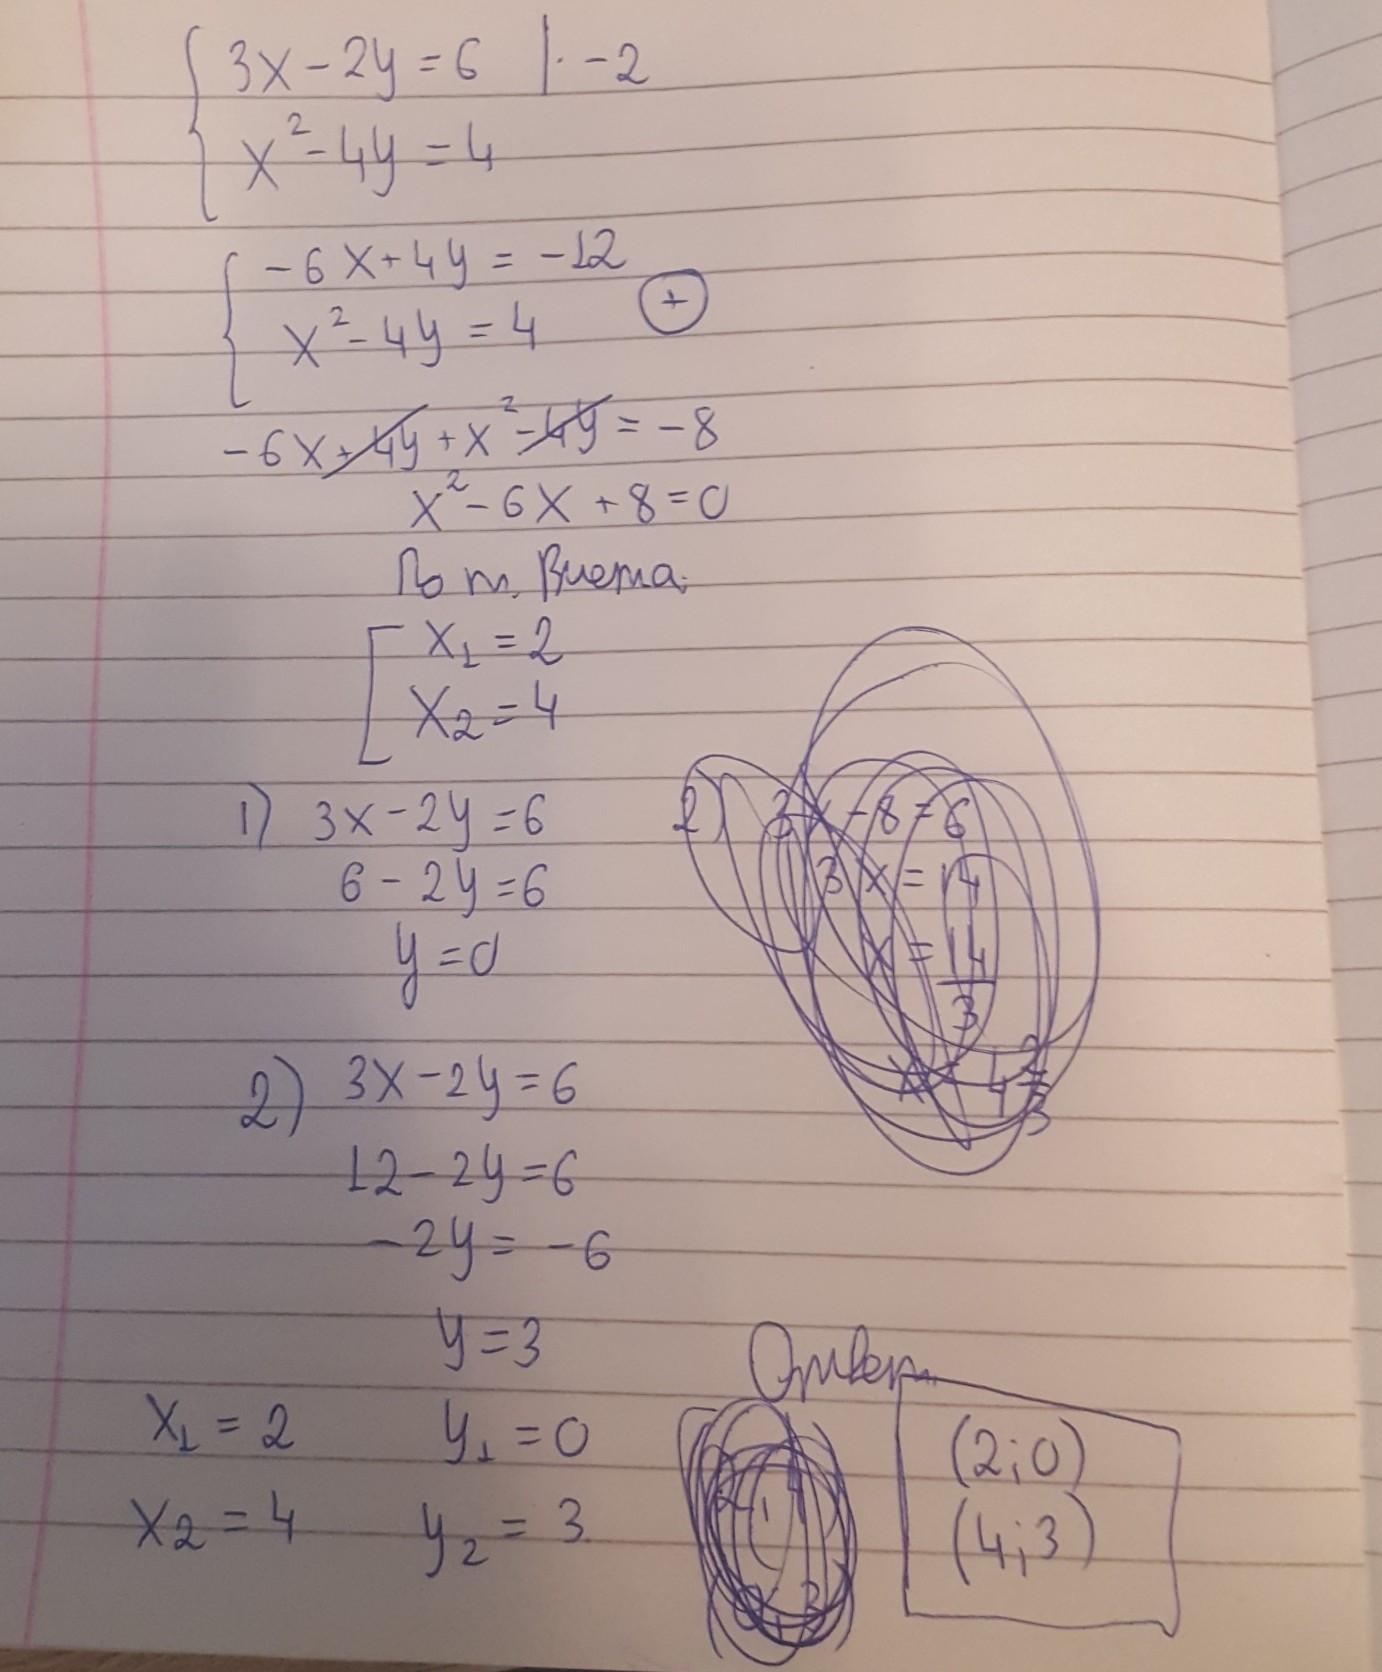 3x - 2y = 6 | · -2
x² - 4y = 4
-6x + 4y = -12
x² - 4y = 4 ⊕
-6x + 4y + x² - 4y = -8
x² - 6x + 8 = 0
По т. Виета.
x₁ = 2
x₂ = 4
1) 3x - 2y = 6
6 - 2y = 6
y = 0
2) 3x - 8 = 6
3x = 14
x = 14/3
2) 3x - 2y = 6
12 - 2y = 6
-2y = -6
y = 3
x₁ = 2 y₁ = 0
x₂ = 4 y₂ = 3
Ответ
(2;0)
(4;3)